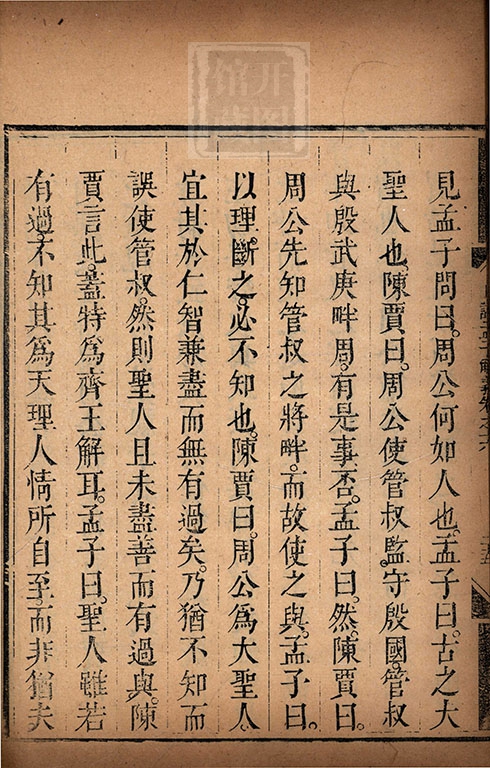 見孟子問曰。周公何如人也。孟子曰。古之大
聖人也。陳賈曰。周公使管叔監守殷國。管叔
與殷武庚畔周。有是事否。孟子曰。然。陳賈曰。
周公先知管叔之將畔。而故使之與。孟子曰。
以理斷之。必不知也。陳賈曰。周公爲大聖人。
宜其於仁智兼盡而無有過矣。乃猶不知而
誤使管叔。然則聖人且未盡善而有過與。陳
賈言此。蓋特爲齊王解耳。孟子曰。聖人雖若
有過。不知其爲天理人情所自至。而非猶夫
開圖
館藏